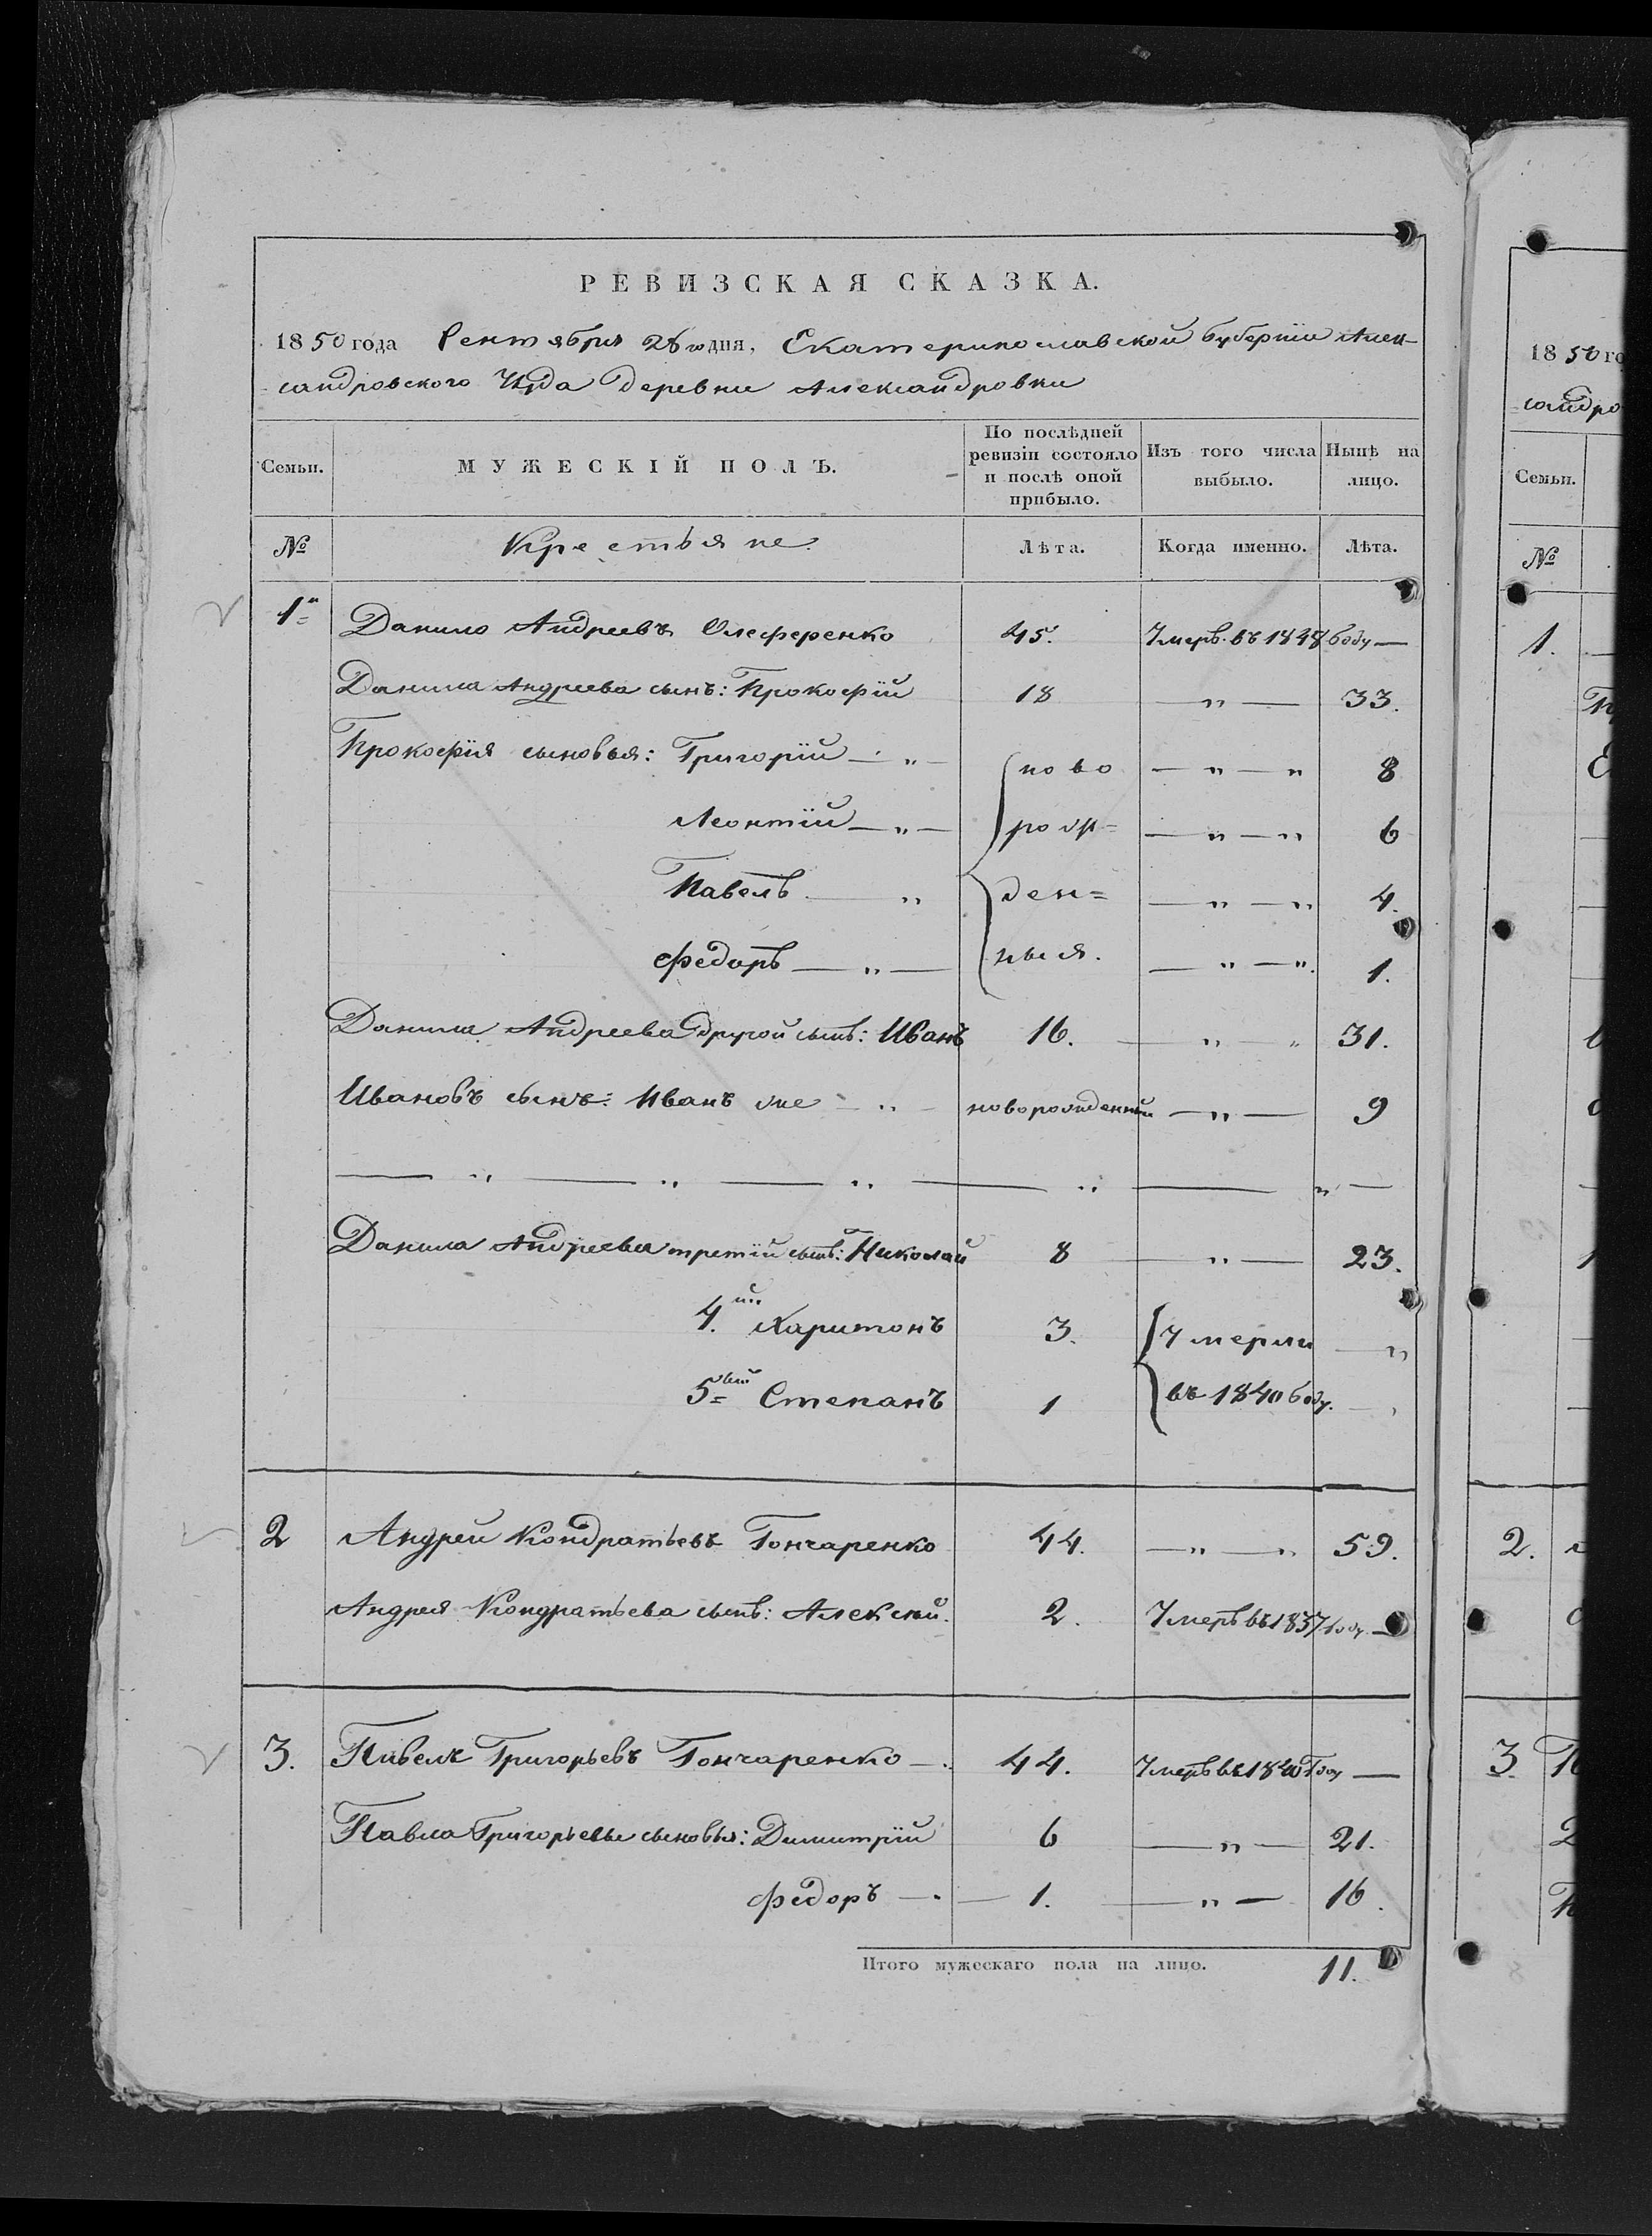 РЕВИЗСКАЯ СКАЗКА.
1850 года Сентября 28 го дня, Екатеринославской Губерніи Алек-
сандровского Уѣзда деревни Александровки
Семьи. МУЖЕСКІЙ ПОЛЪ. По послѣдней ревизіи состояло и послѣ оной прибыло. Изъ того числа выбыло. Нынѣ на лицо.
№ Крестьяне. Лѣта. Когда именно. Лѣта.
1й Данило Андреевъ Олеференко 45. Умеръ въ 1848 Году —
Данила Андреева сынъ: Прокофій 18 — " — 33.
Прокофія сыновья: Григорій — " — ново — " — " 8
Леонтій — " — рож= — " — " 6
Павелъ — " ден= — " — " 4.
Федоръ — " — ныя. — " — ". 1.
Данила Андреева другой сынъ: Иванъ 16. — " — " 31.
Ивановъ сынъ: Иванъ же — " — новорожденный — " — 9
— " — " — " — " — " —
Данила Андреева третій сынъ: Николай 8 — " — 23.
4.ый Харитонъ 3. Умерли — "
5=ый Степанъ 1 въ 1840 Году. — ,
2 Андрей Кондратьевъ Гончаренко 44. — " — " 59.
Андрея Кондратьева сынъ: Алексѣй. 2. Умеръ въ 1837 Году —
3. Павелъ Григорьевъ Гончаренко — 44. Умеръ въ 1840 Году —
Павла Григорьева сыновья: Димитрій 6 — " — 21.
Федоръ — . — 1. — " — 16.
Итого мужескаго пола на лицо. 11.
1850 го
сандро
Семьи.
№
1.
2.
3.